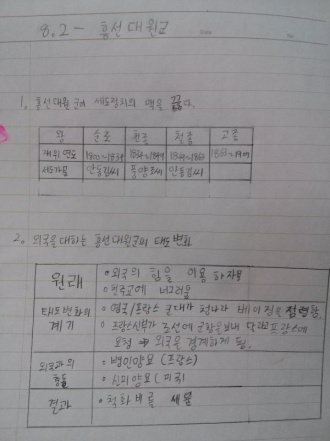 8.2 - 흥선대원군
1. 흥선대원군이 세도정치의 맥을 끊다.
왕 순조 헌종 철종 고종
재위 연도 1800~1834 1834~1849 1849~1863 1863~1907
세도가문 안동김씨 풍양조씨 안동김씨
2. 외국을 대하는 흥선대원군의 태도변화
원래 • 외국의 힘을 이용하자
• 천주교에 너그러움
태도변화의 계기 • 영국/프랑스 군대가 청나라 베이징을 점령함
• 프랑스신부가 조선에 군함을 보내 달라고 프랑스에
요청 → 외국을 경계하게 됨.
외국과의 충돌 • 병인양요 (프랑스)
• 신미양요 (미국)
결과 • 척화비를 세움